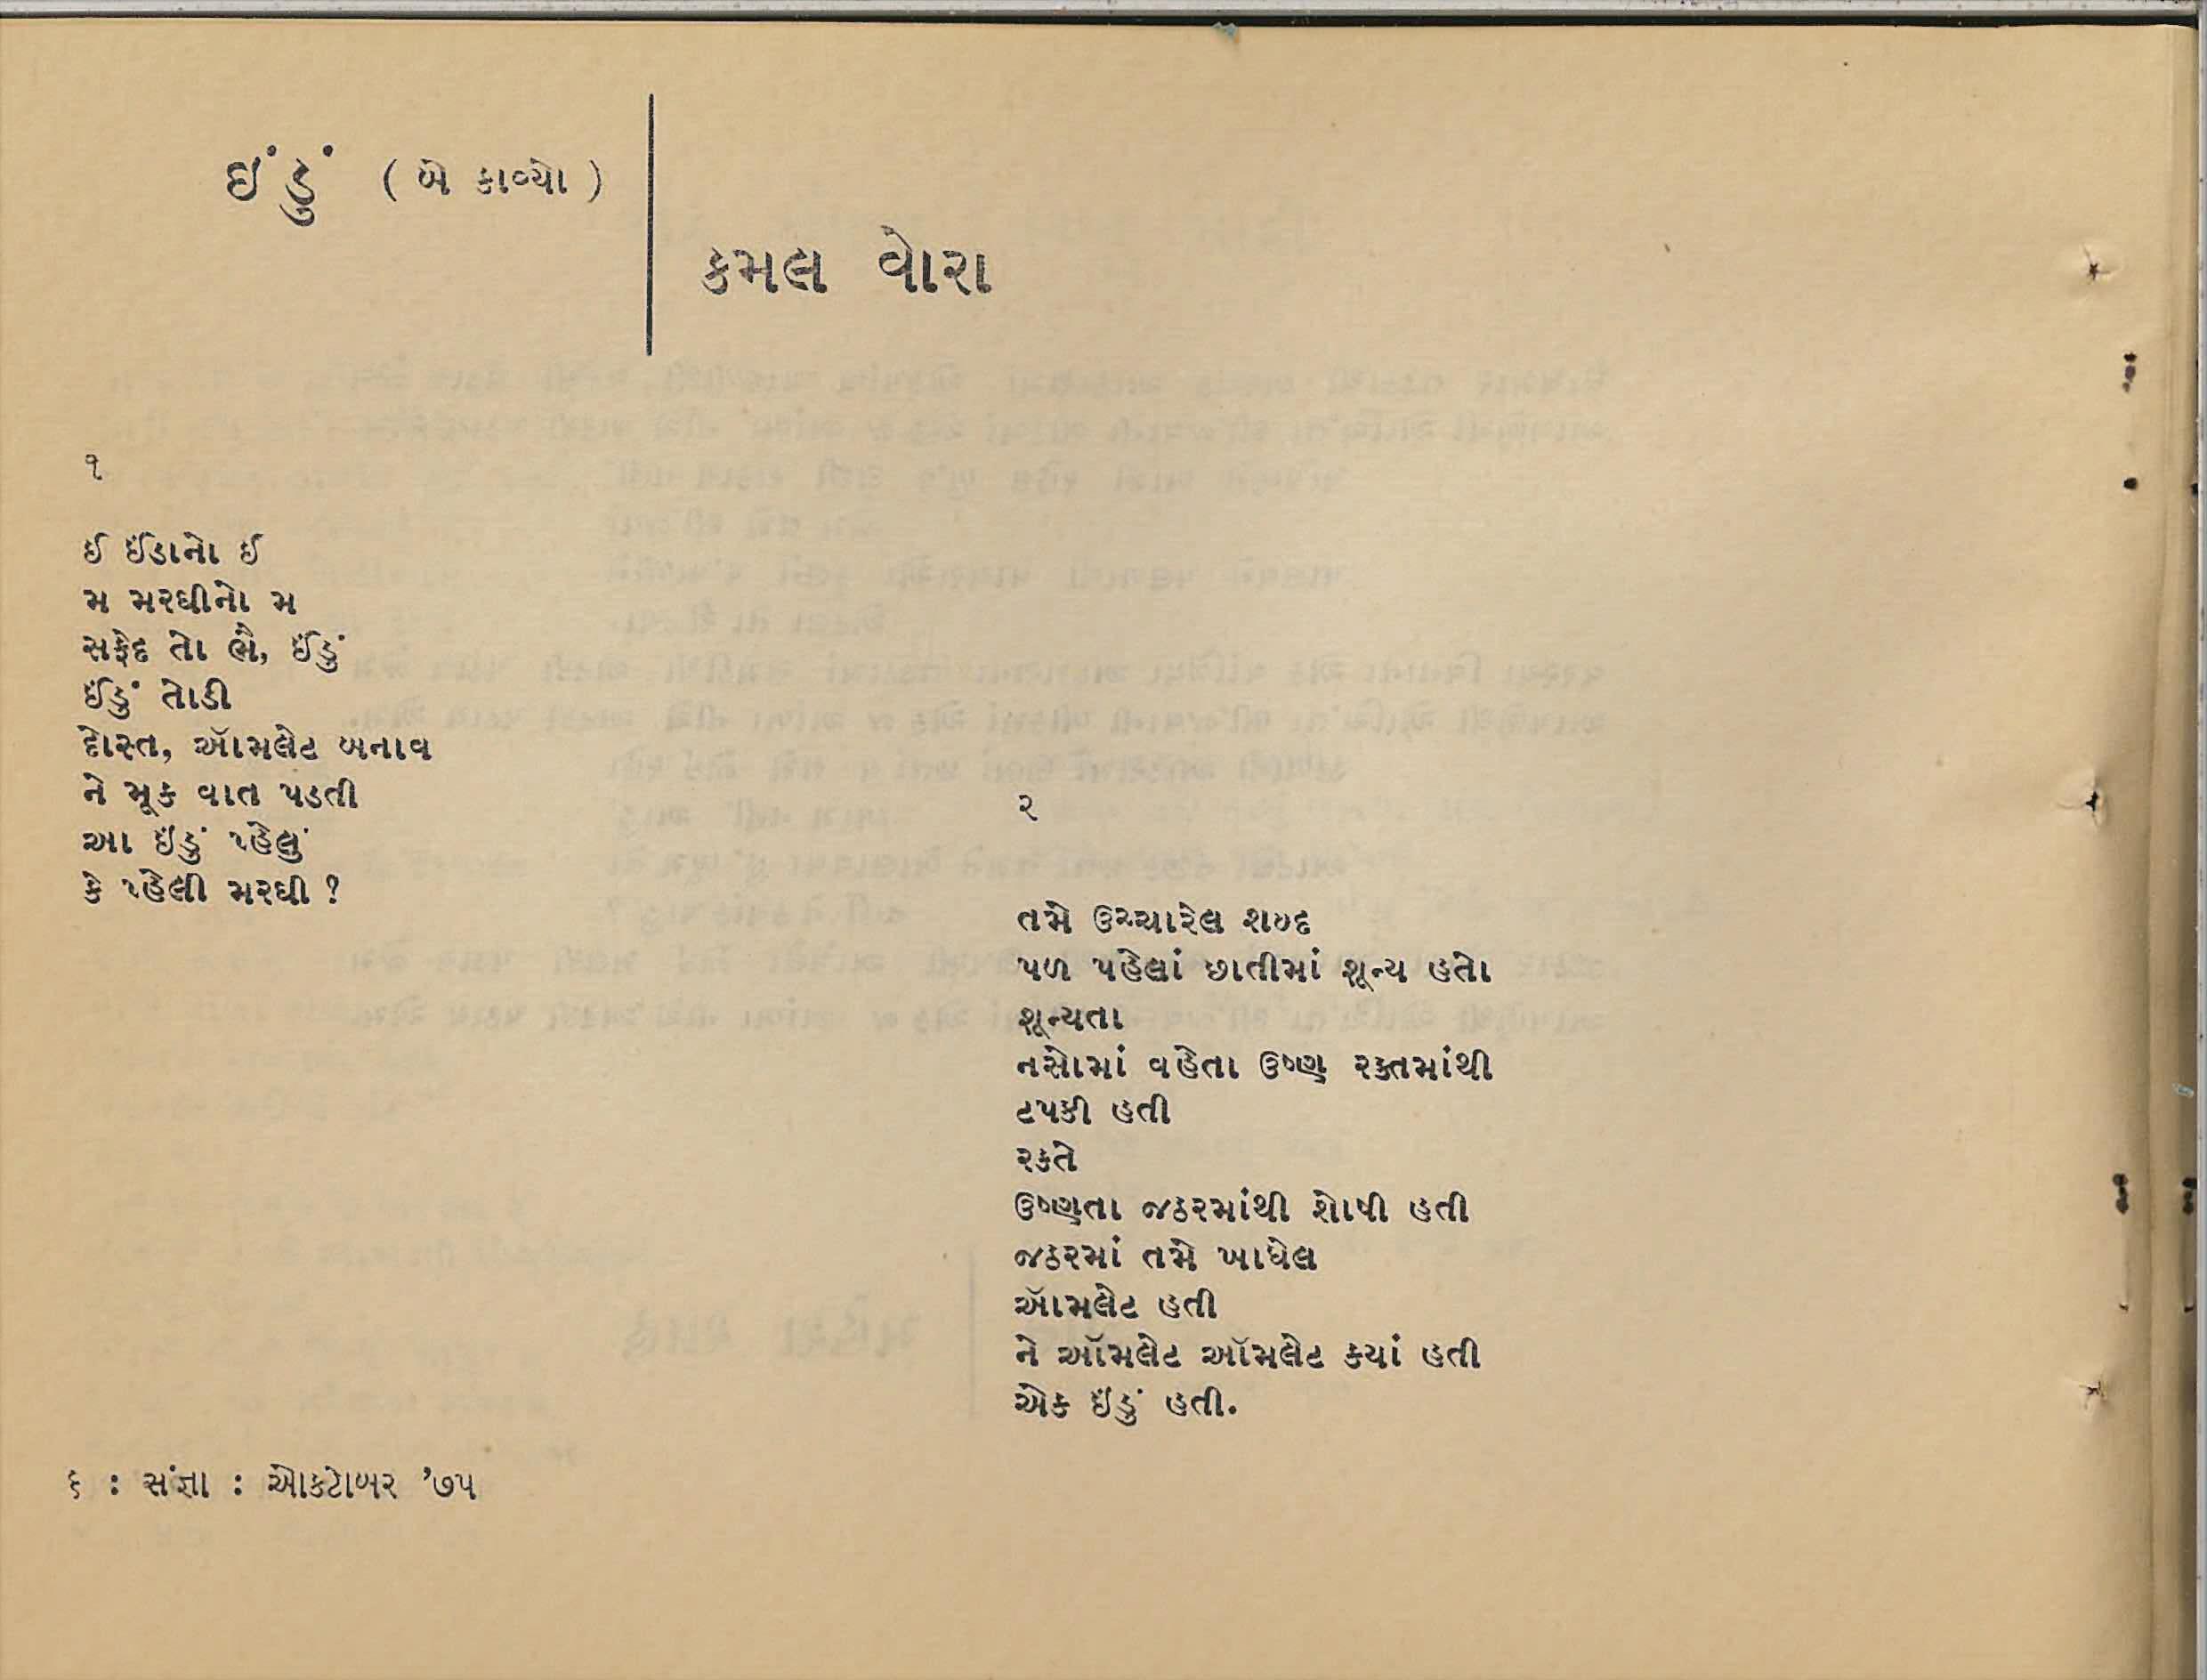 ઇંડું ( બે કાવ્યો )
કમલ વોરા
૧
ઈ ઈંડાનો ઈ
મ મરઘીનો મ
સફેદ તો ભૈ, ઈંડું
ઈંડું તોડી
દોસ્ત, ઑમલેટ બનાવ
ને મૂક વાત પડતી
આ ઇંડું પ્હેલું
કે પ્હેલી મરઘી ?
૨
તમે ઉચ્ચારેલ શબ્દ
પળ પહેલાં છાતીમાં શૂન્ય હતો
શૂન્યતા
નસોમાં વહેતા ઉષ્ણ રક્તમાંથી
ટપકી હતી
રક્તે
ઉષ્ણતા જઠરમાંથી શોષી હતી
જઠરમાં તમે ખાધેલ
ઑમલેટ હતી
ને ઑમલેટ ઑમલેટ ક્યાં હતી
એક ઇંડું હતી.
૬ : સંજ્ઞા : ઓક્ટોબર ’૭૫